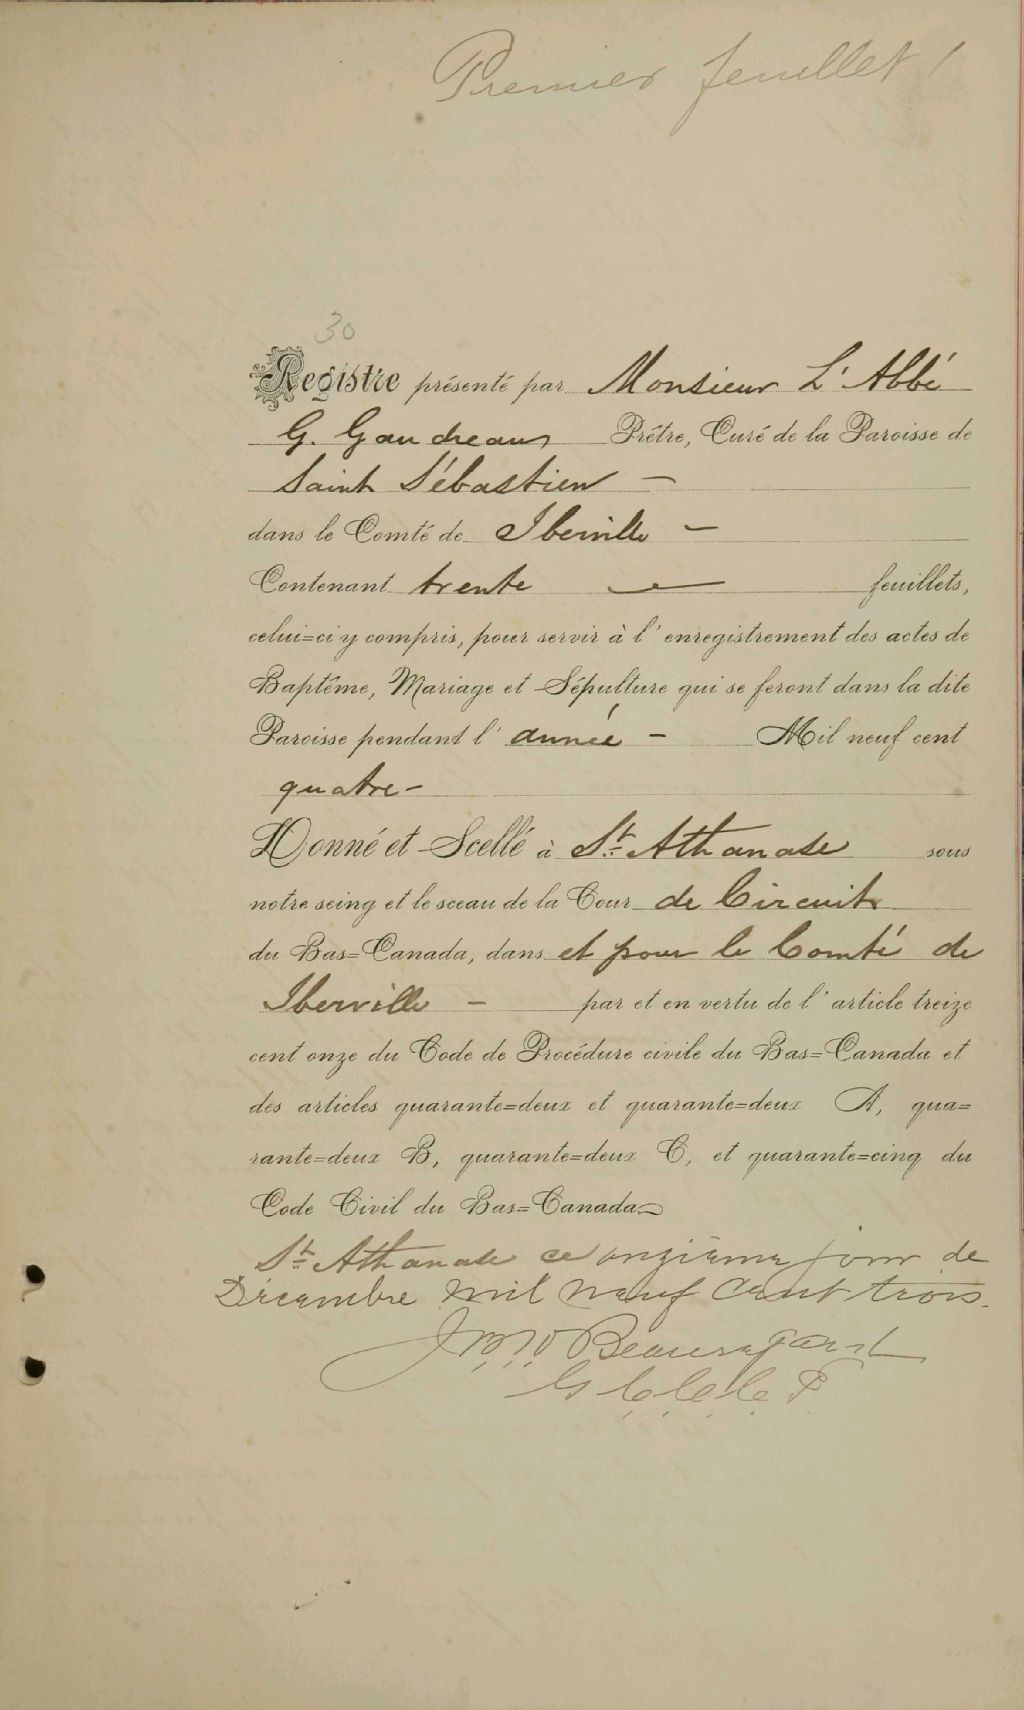 Premier feuillet /
30
Registre présenté par Monsieur L'Abbé
G. Gaudreau Prêtre, Curé de la Paroisse de
Saint Sébastien –
dans le Comté de Iberville –
Contenant trente — feuillets,
celui=ci y compris, pour servir à l'enregistrement des actes de
Baptême, Mariage et Sépulture qui se feront dans la dite
Paroisse pendant l'année – Mil neuf cent
quatre –
Donné et Scellé à St. Athanase sous
notre seing et le sceau de la Cour de Circuit
du Bas=Canada, dans et pour le Comté de
Iberville – par et en vertu de l'article treize
cent onze du Code de Procédure civile du Bas=Canada et
des articles quarante=deux et quarante=deux A, qua=
rante=deux B, quarante=deux C, et quarante=cinq du
Code Civil du Bas=Canada
St. Athanase ce onzième jour de
Décembre mil neuf cent trois.
Beauregard